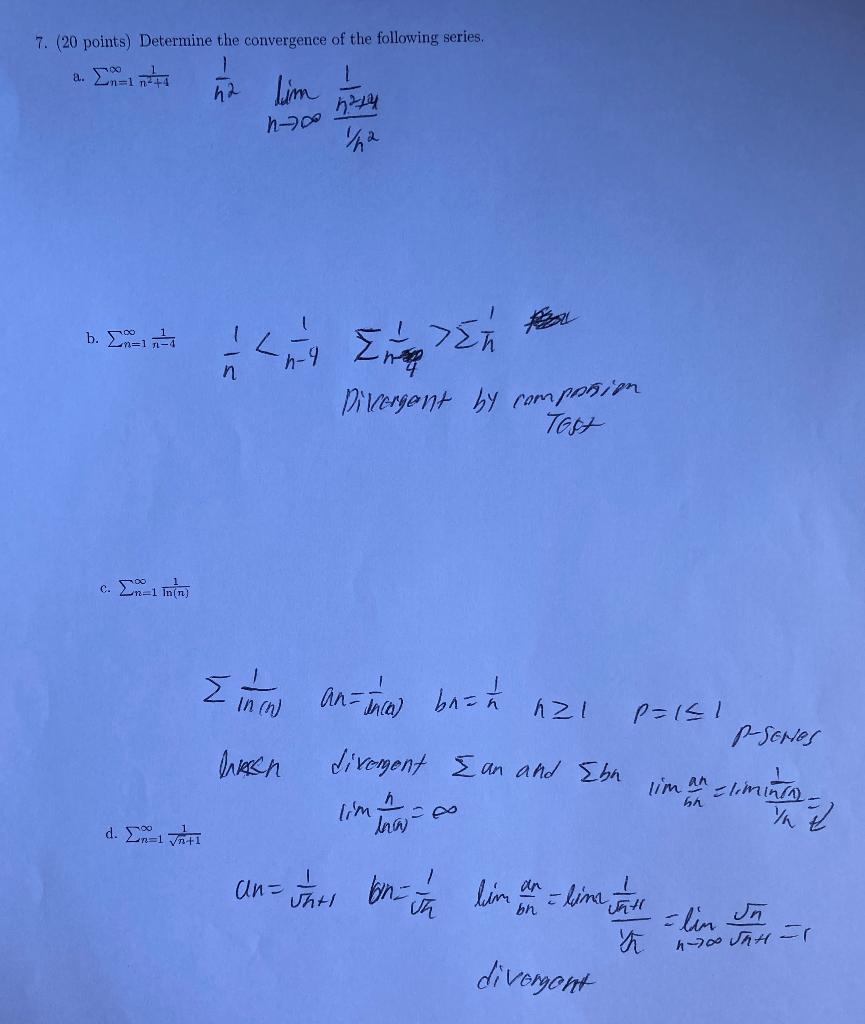 7. (20 points) Determine the convergence of the following series.
a. ∑_{n=1}^{∞} 1/(n²+4)   1/n²   lim_{n→∞} (1/(n²+4))/(1/n²)
b. ∑_{n=1}^{∞} 1/(n−4)   1/n < 1/(n−4)   ∑ 1/(n−4) > ∑ 1/n
Divergent by
Test
c. ∑_{n=1}^{∞} 1/ln(n)
∑ 1/ln(n)   an = 1/ln(n)   bn = 1/n   n ≥ 1   p = 1 ≤ 1
p-series
divergent ∑an and ∑bn   lim an/bn = lim (1/ln(n))/(1/n) =
lim n/ln(n) = ∞
d. ∑_{n=1}^{∞} 1/(√n+1)
an = 1/(√n+1)   bn = 1/√n   lim an/bn = lim (1/(√n+1))/(1/√n) = lim_{n→∞} √n/(√n+1) = 1
divergent